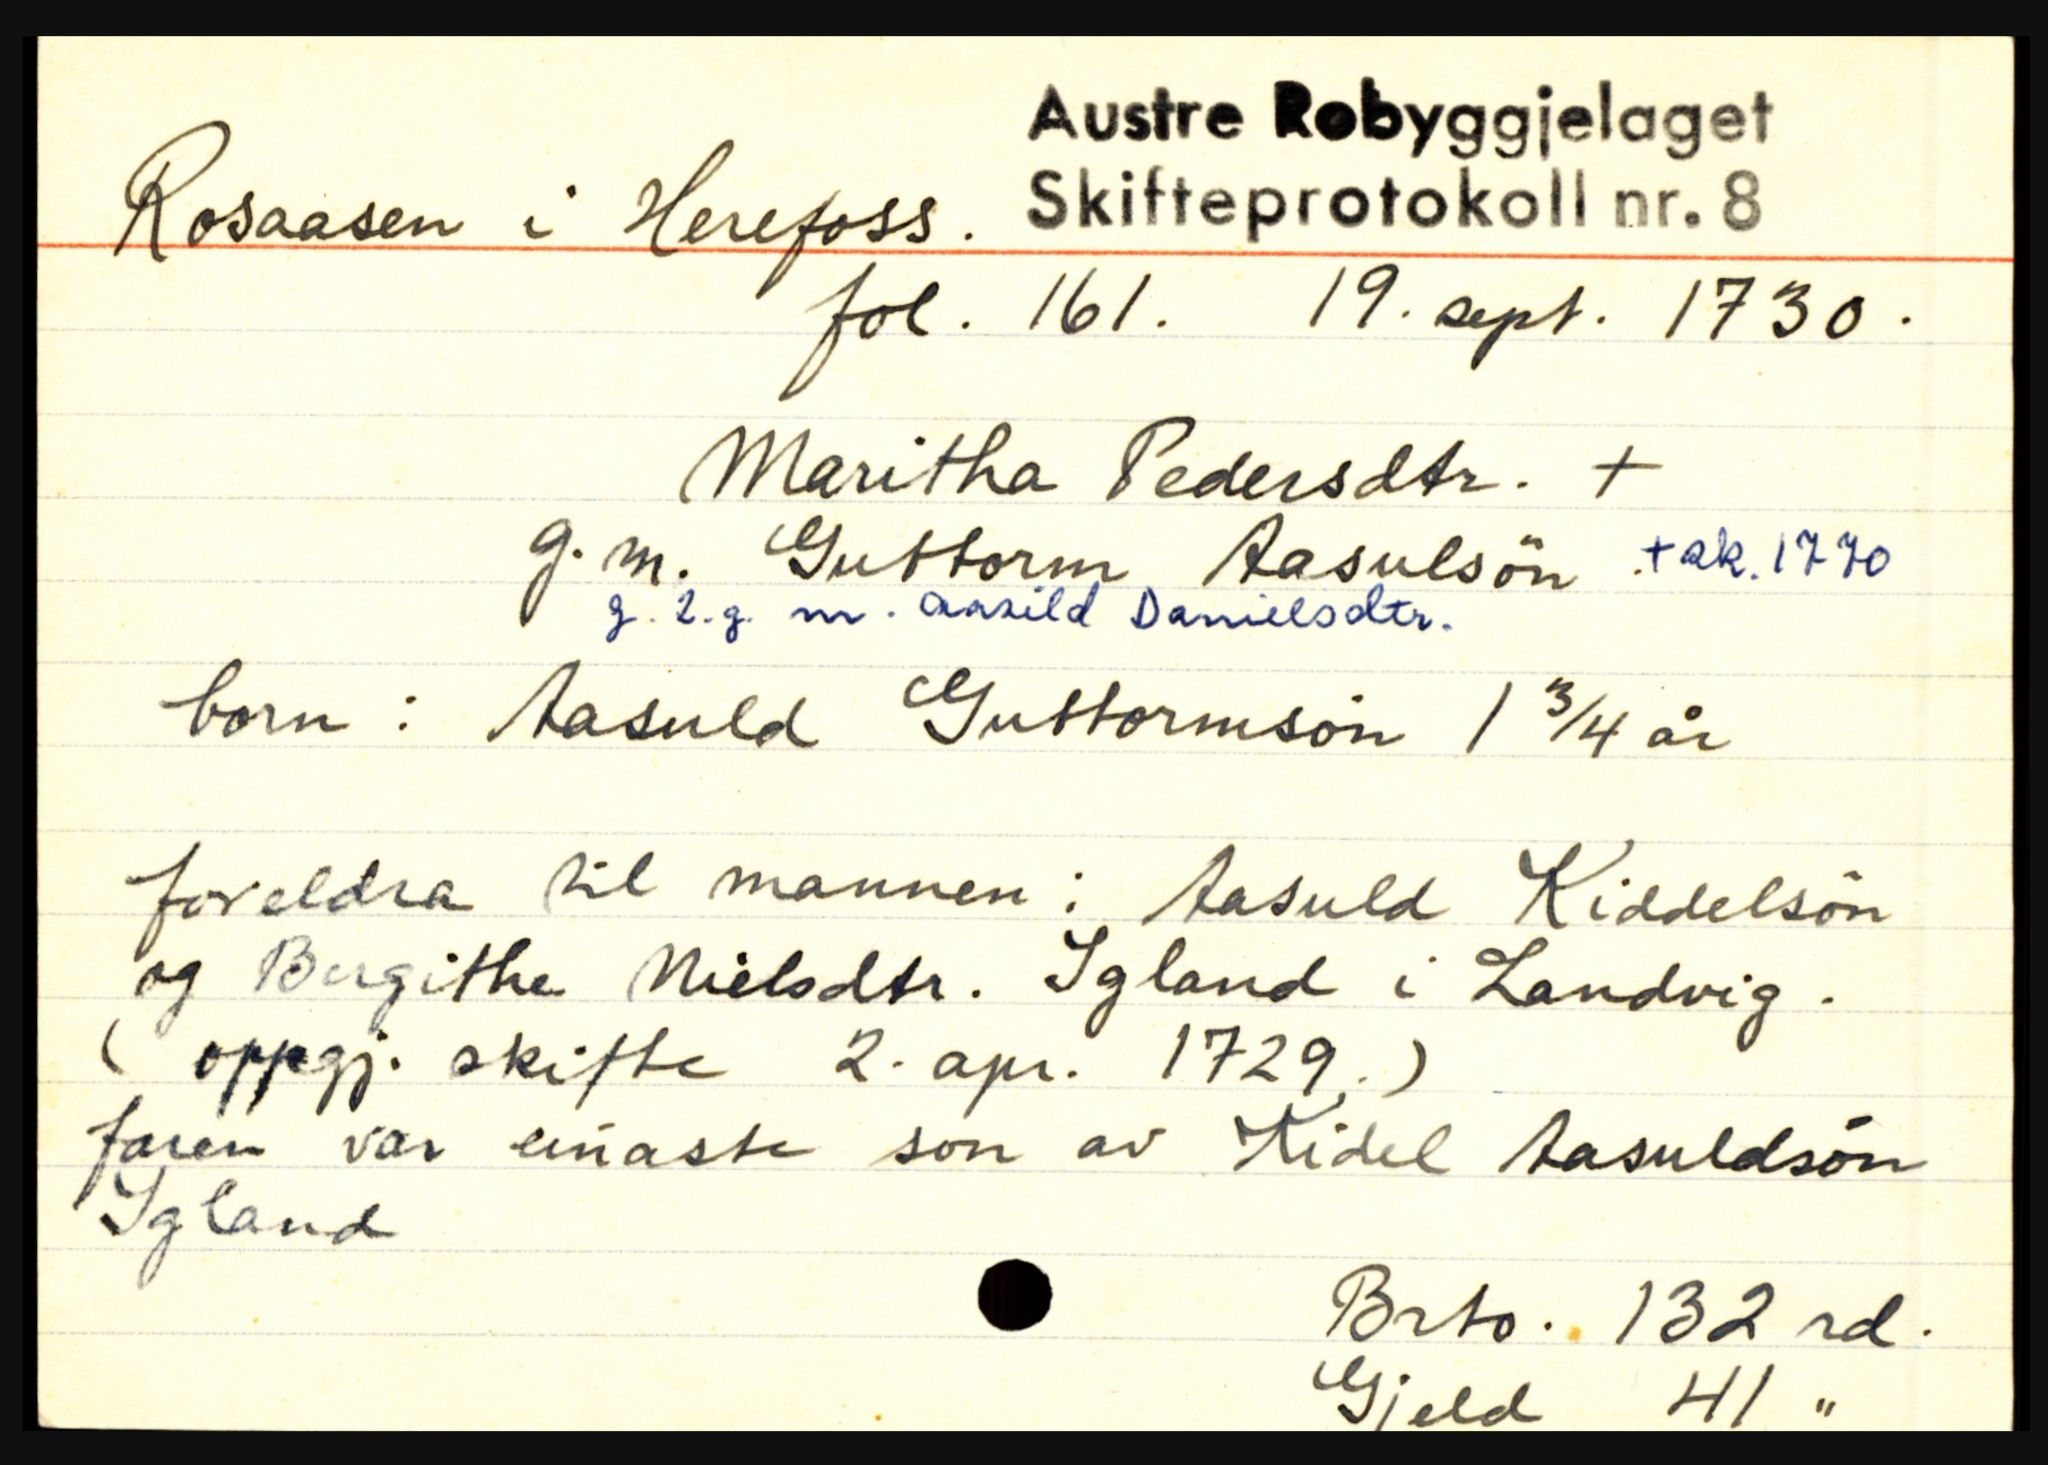 Austre Robyggjelaget
Skifteprotokoll nr. 8
Rosaasen i Herefoss.
fol. 161. 19. sept. 1730.
Maritha Pedersdtr. +
g. m. Guttorm Aasulsön + sk. 1770
g. 2. g. m. Aasild Danielsdtr.
born: Aasuld Guttormsön 1 3/4 år
foreldra til mannen: Aasuld Kiddelsön
og Bergithe Nielsdtr. Igland i Landvig.
(oppgj. skifte 2. apr. 1729.)
faren var einaste son av Kidel Aasuldsön
Igland
Brto. 132 rd.
Gjeld 41 "